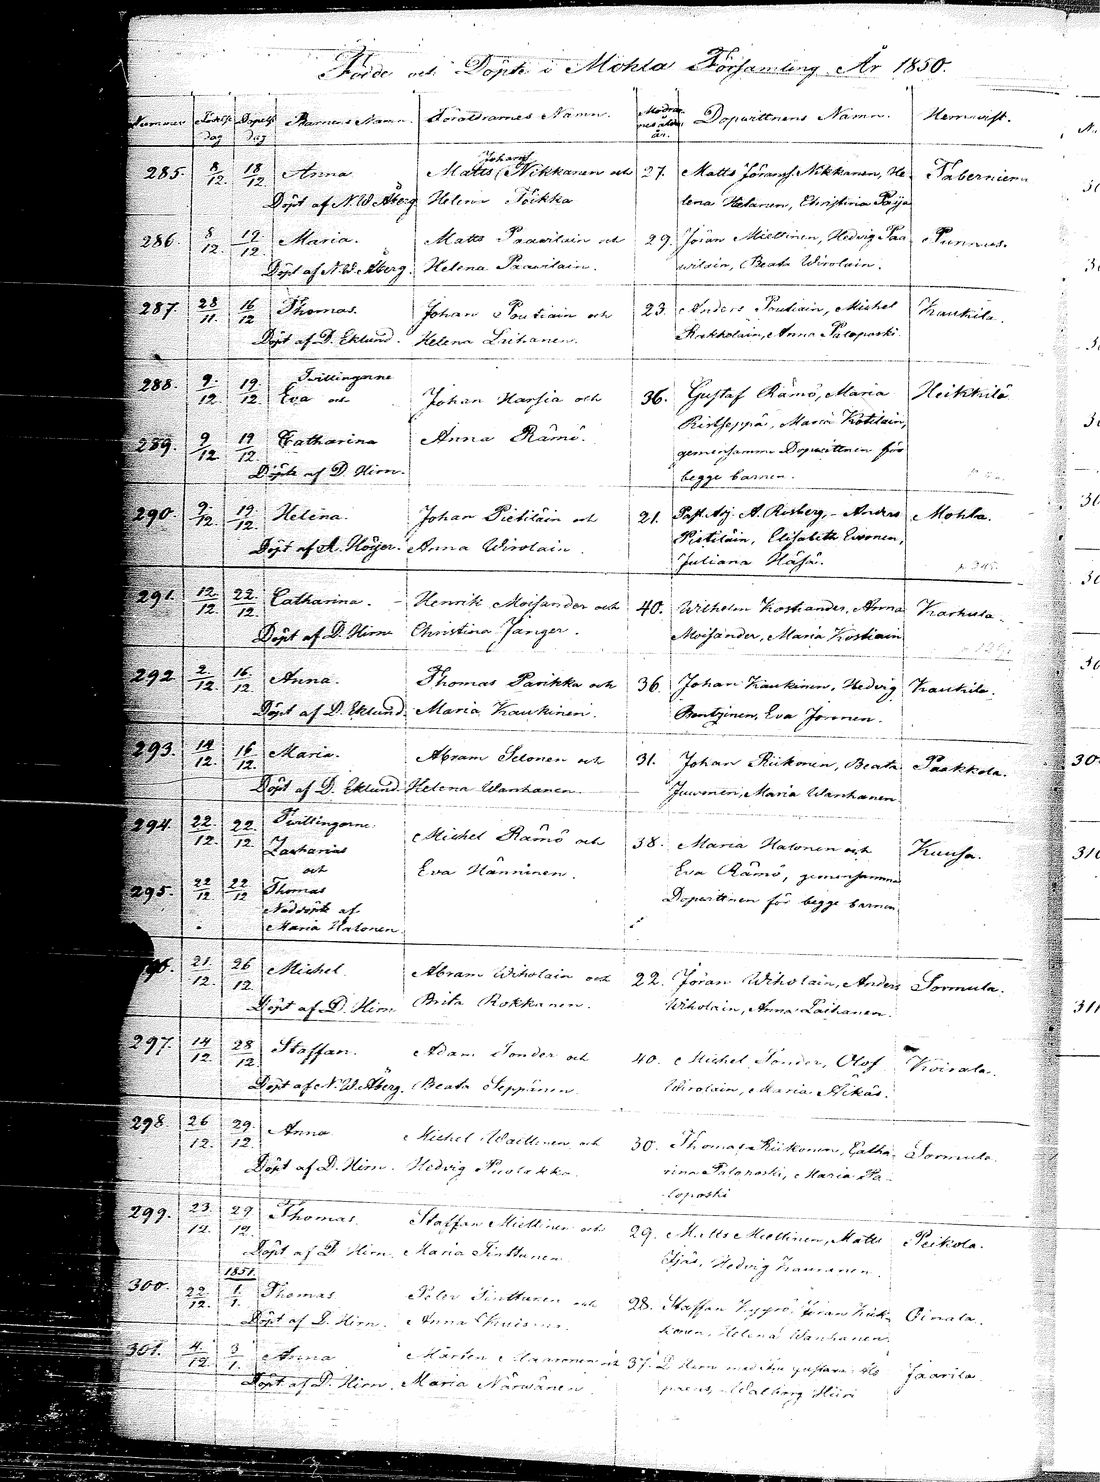 Födde och Döpte i Mohla Församling År 1850.
Nummer Födelse dag Döpelse dag Barnens Namn. Föräldrarnes Namn. Modrarnes ålder år. Dopwittnens Namn. Hemwist.
285. 8/12. 18/12. Anna Matts Johansf Nikkanen och 27. Matts Jöransf Nikkanen, He- Taberniem
Döpt af N. W. Åberg Helena Töikka lena Hatanen, Christina Paija
286. 8/12. 19/12. Maria. Matts Paawilain och 29. Jöran Miettinen, Hedvig Paa- Punnus.
Döpt af N. W. Åberg. Helena Paawilain. wilain, Beata Wirolain.
287. 28/11. 16/12 Thomas. Johan Poutiain och 23. Anders Poutiain, Michel Kaukila.
Döpt af D. Eklund. Helena Liuhanen. Kukkolain, Anna Paloposki.
288. 9/12. 19/12. Twillingarne Eva och Johan Harsia och 36. Gustaf Rämö, Maria Heikkilä
289. 9/12 19/12 Catharina Anna Rämö. Kirbseppä, Maria Kotilain,
Döpte af D. Hirn. gemensamma Dopwittnen för
begge barnen.
290. 9/12 19/12. Helena. Johan Pietiläin och 21. Past. Adj. A. Rosberg, Anders Mohla.
Döpt af A. Höijer. Anna Wirolain. Pietiläin, Elisabeth Ewonen,
Juliana Häfä.
291. 12/12 22/12. Catharina. Henrik Moisander och 40. Wilhelm Kostiander, Anna Karkula.
Döpt af D. Hirn Christina Jänger. Moisander, Maria Kostiain
292 2/12. 16/12. Anna. Thomas Parikka och 36. Johan Kaukinen, Hedvig Kaukila.
Döpt af D. Eklund. Maria Kaukinen. Pontzinen, Eva Joronen.
293. 14/12. 16/12. Maria. Abram Ilonen och 31. Johan Riikonen, Beata Paakkola.
Döpt af D. Eklund Helena Wanhanen. Juwonen, Maria Wanhanen
294. 22/12. 22/12. Twillingarne. Michel Rämö och 38. Maria Hatonen och Kuusa.
Zacharias
och Eva Hänninen. Eva Rämö, gemensamma
295. 22/12 22/12 Thomas Dopwittnen för begge barnen
Nöddöpte af
Maria Hatonen
21/12. 26/12. Michel. Abram Wiholain och 22. Jöran Wiholain, Anders Sormula.
Döpt af D. Hirn Brita Rokkanen. Wiholain, Anna Laihanen.
297. 14/12. 28/12. Staffan. Adam Tonder och 40. Michel Tonder, Olof Koirala.
Döpt af N. W. Åberg. Beata Seppänen Wirolain, Maria Äikäs.
298. 26/12. 29/12 Anna Michel Waittinen och 30. Thomas Riikonen, Catha- Sormula.
Döpt af D. Hirn. Hedvig Puolakka. rina Paloposki, Maria Pa-
loposki
299. 23/12. 29/12. Thomas. Staffan Miettinen och 29. Matts Miettinen, Matts Peikola.
Döpt af D. Hirn. Maria Tinttunen Hedvig Kauranen.
300. 22/12. 1851. 1/1. Thomas Peter Tinttunen och 28. Staffan Jöran Kuk- Oinala.
Döpt af D. Hirn. Anna konen, Helena Wanhanen
301. 4/12 3/1. Anna Mårten och 37. D. Hirn med Jaarila.
Döpt af D. Hirn. Maria Närwänen. Walborg